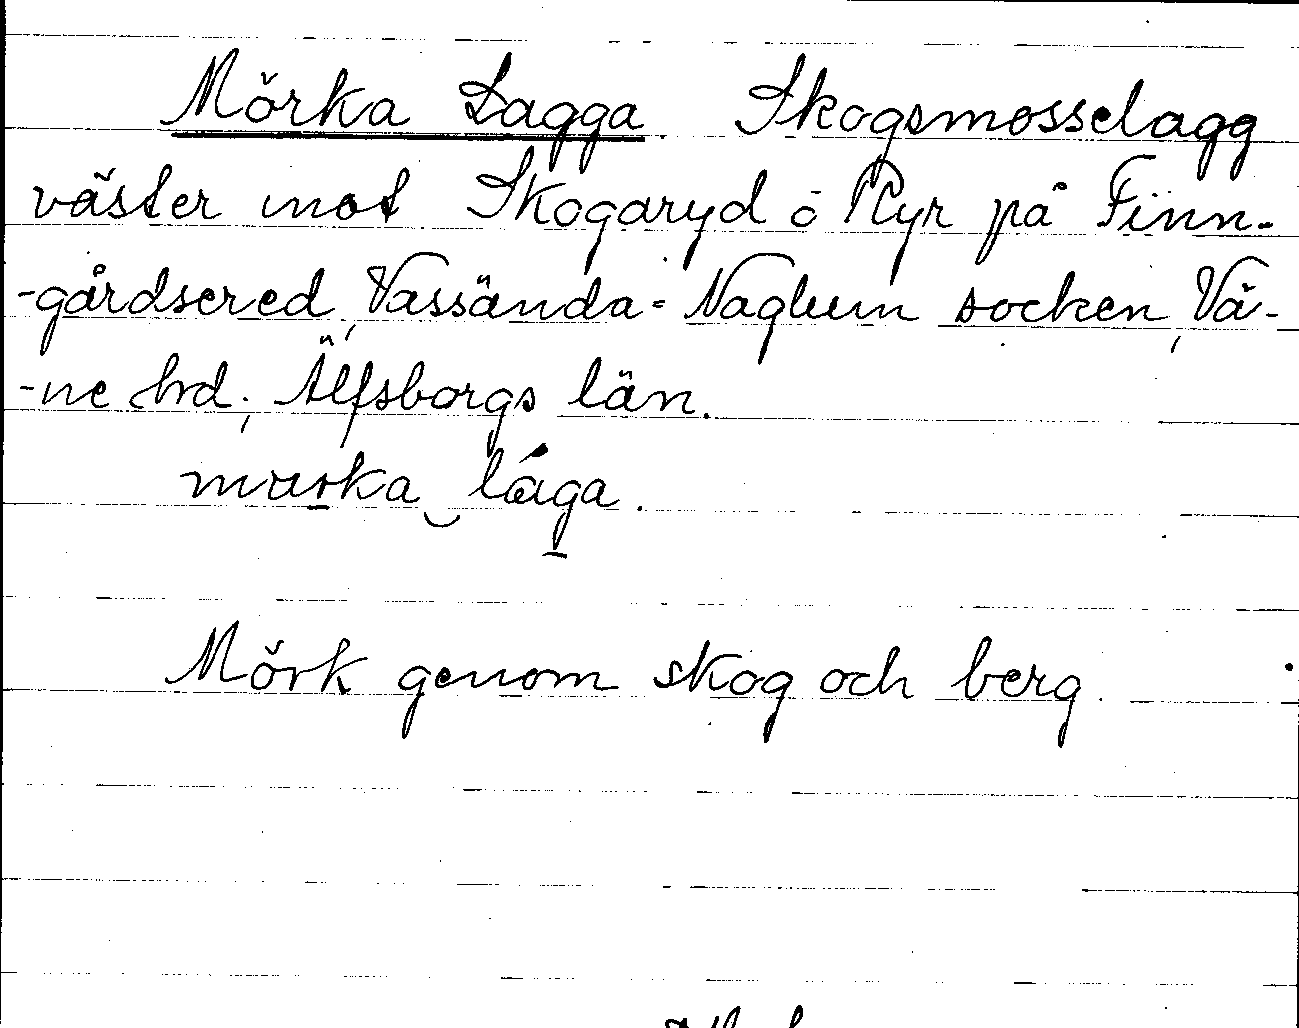 Mörka Lagga. Skogsmosselagg
väster mot Skogaryd ö Ryr på Finn-
-gårdsered, Vassända-Naglum socken, Vä-
-ne hrd, Älfsborgs län.
lága.
Mörk genom skog och berg.